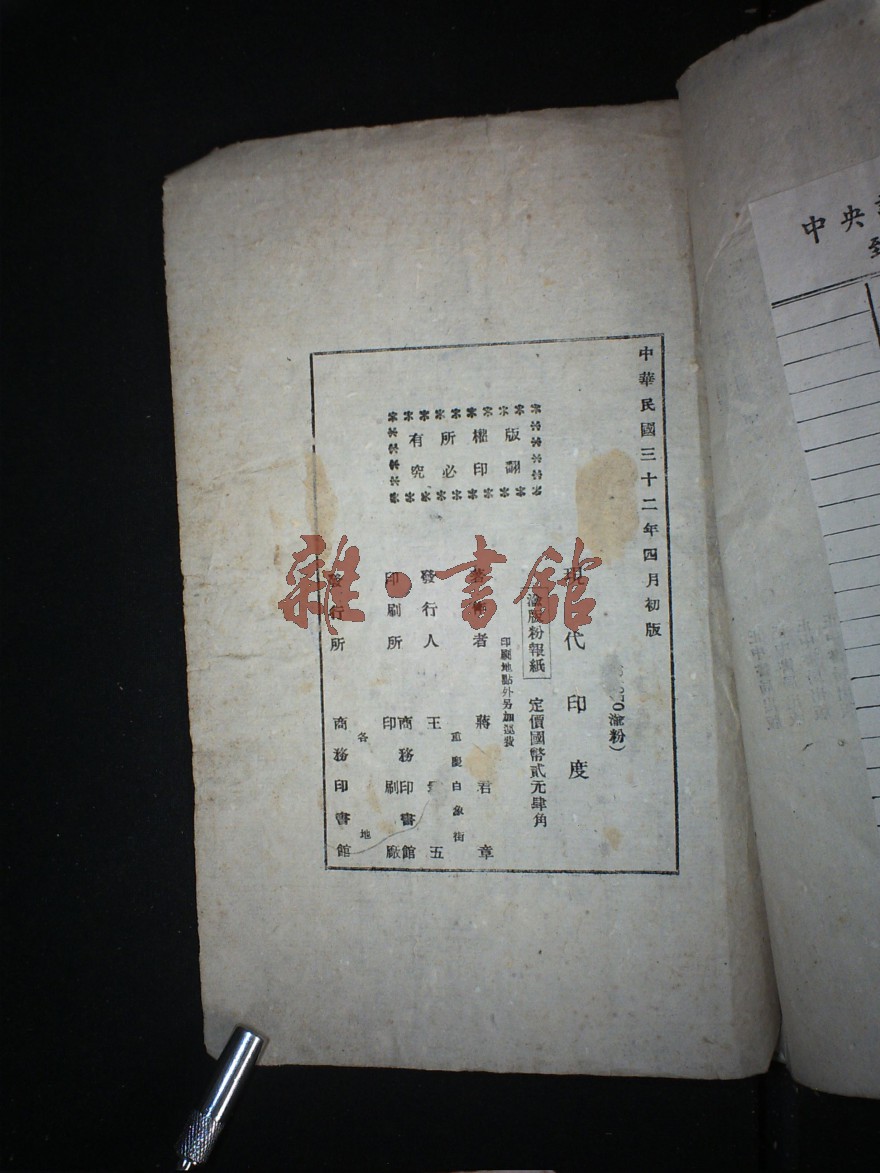 中華民國三十二年四月初版
渝粉）
現代印度
渝版粉報紙 定價國幣貳元肆角
印刷地點外另加運費
著作者 蔣君章
重慶白象街
發行人 王 五
印刷所 商務印書館
印刷廠
各地
發行所 商務印書館
版權所有
翻印必究
中央
雜·書館